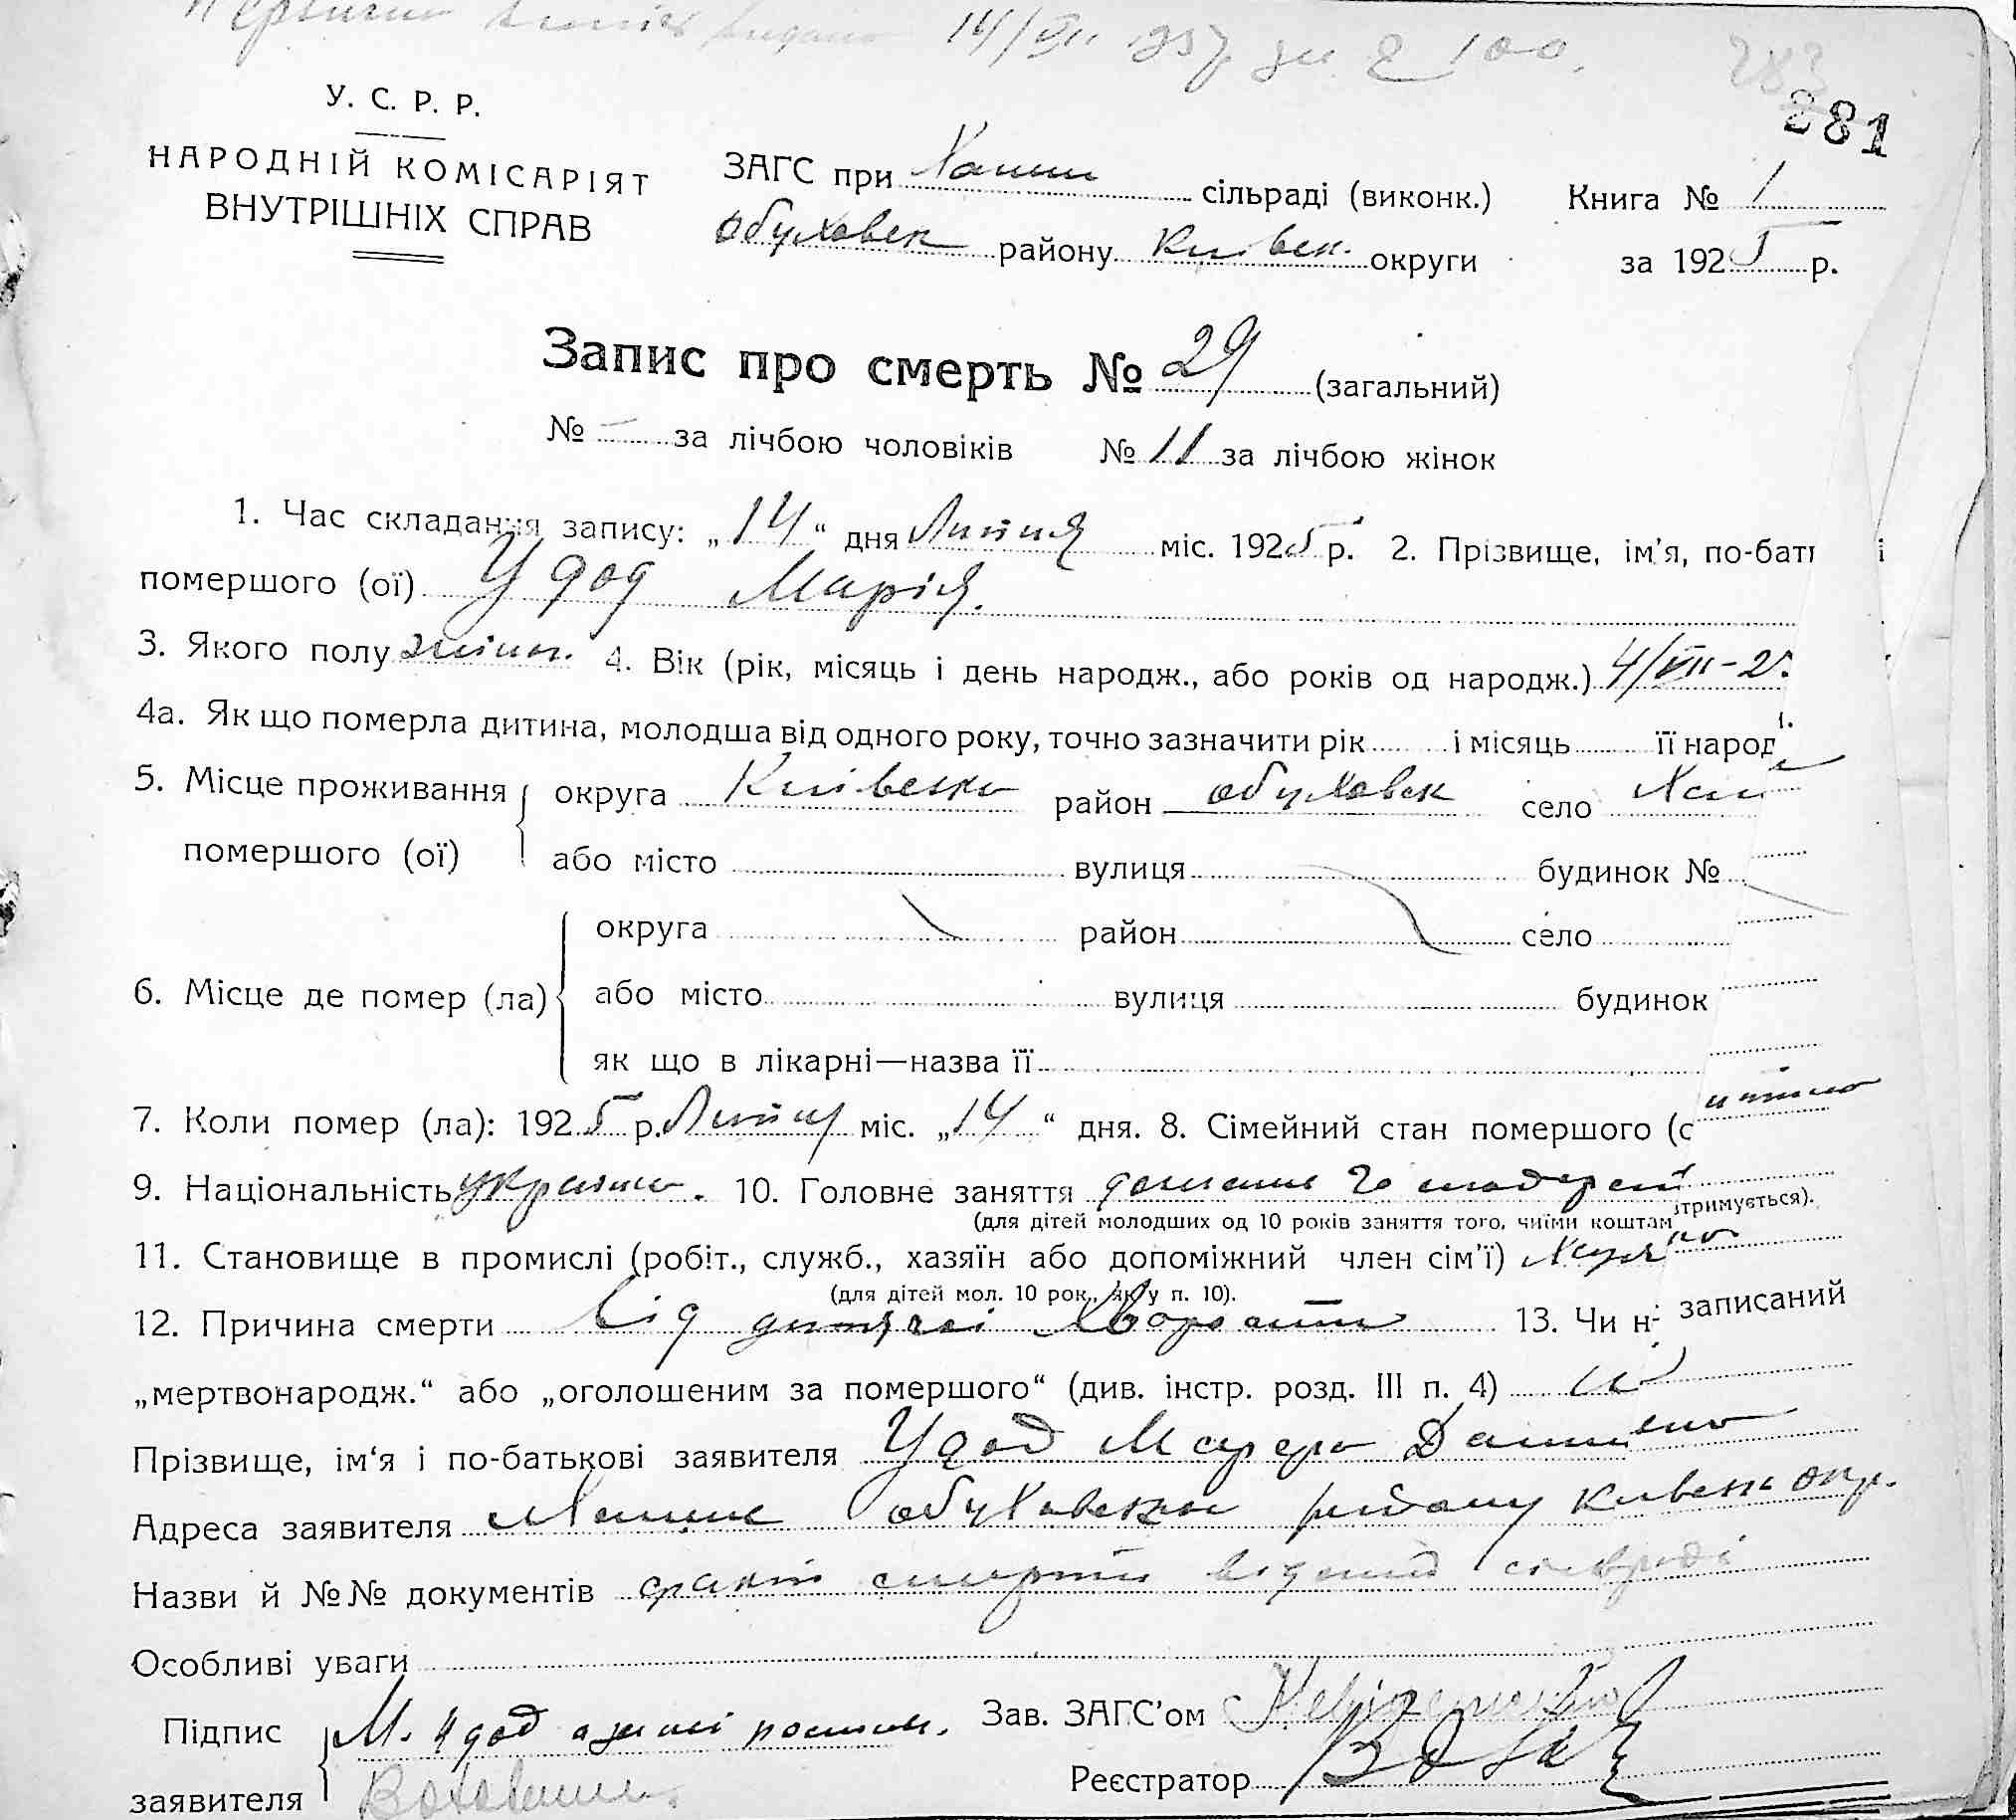 14/VII 1937 за № 100.
283
281
У. С. Р. Р.
НАРОДНІЙ КОМІСАРІЯТ
ВНУТРІШНІХ СПРАВ
ЗАГС при сільраді (виконк.) Книга № 1
обуховск району Київск. округи за 1925 р.
Запис про смерть № 29 (загальний)
№ – за лічбою чоловіків № 11 за лічбою жінок
1. Час складання запису: „14“ дня Липня міс. 1925 р. 2. Прізвище, ім'я, по-бат і
помершого (ої) Удод Марія.
3. Якого полу жіноч. 4. Вік (рік, місяць і день народж., або років од народж.) 4/VII-25
4а. Як що померла дитина, молодша від одного року, точно зазначити рік і місяць її народ
5. Місце проживання округа Київська район обуховск село
помершого (ої) або місто вулиця будинок №
округа район село
6. Місце де помер (ла) або місто вулиця будинок
як що в лікарні—назва її
7. Коли помер (ла): 1925 р. Липня міс. „14“ дня. 8. Сімейний стан помершого (с
9. Національність україн. 10. Головне заняття
(для дітей молодших од 10 років заняття того, чиїми коштам тримується).
11. Становище в промислі (робіт., служб., хазяїн або допоміжний член сім'ї)
(для дітей мол. 10 рок., як у п. 10).
12. Причина смерти Від дитячої хворости 13. Чи н записаний
„мертвонародж.“ або „оголошеним за помершого“ (див. інстр. розд. III п. 4) ні
Прізвище, ім‘я і по-батькові заявителя Удод
Адреса заявителя обуховскн району окр.
Назви й №№ документів факт смерти відомий сільраді
Особливі уваги
Підпис М. Удод Зав. ЗАГС'ом
заявителя Реєстратор